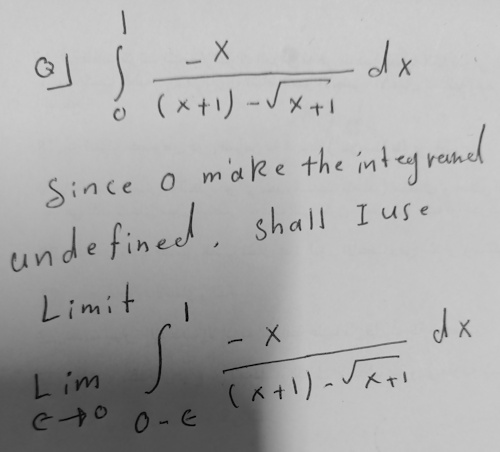 Q] ∫₀¹ -x / ((x+1) - √(x+1)) dx
Since 0 make the integrand
undefined, shall I use
Limit
Lim ∈→0 ∫₀₋∈¹ -x / ((x+1) - √(x+1)) dx